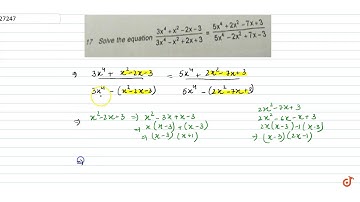 27247
17 Solve the equation (3x⁴ + x² - 2x - 3)/(3x⁴ - x² + 2x + 3) = (5x⁴ + 2x² - 7x + 3)/(5x⁴ - 2x² + 7x - 3)
⇒ (3x⁴ + x² - 2x - 3)/(3x⁴ - (x² - 2x - 3)) = (5x⁴ + 2x² - 7x + 3)/(5x⁴ - (2x² - 7x + 3))
⇒ x² - 2x + 3 ⇒ x² - 3x + x - 3
⇒ x(x-3) + (x-3)
⇒ (x-3)(x+1)
2x² - 7x + 3
2x² - 6x - x + 3
2x(x-3) - 1(x-3)
⇒ (x-3)(2x-1)
⇒
doubtnut